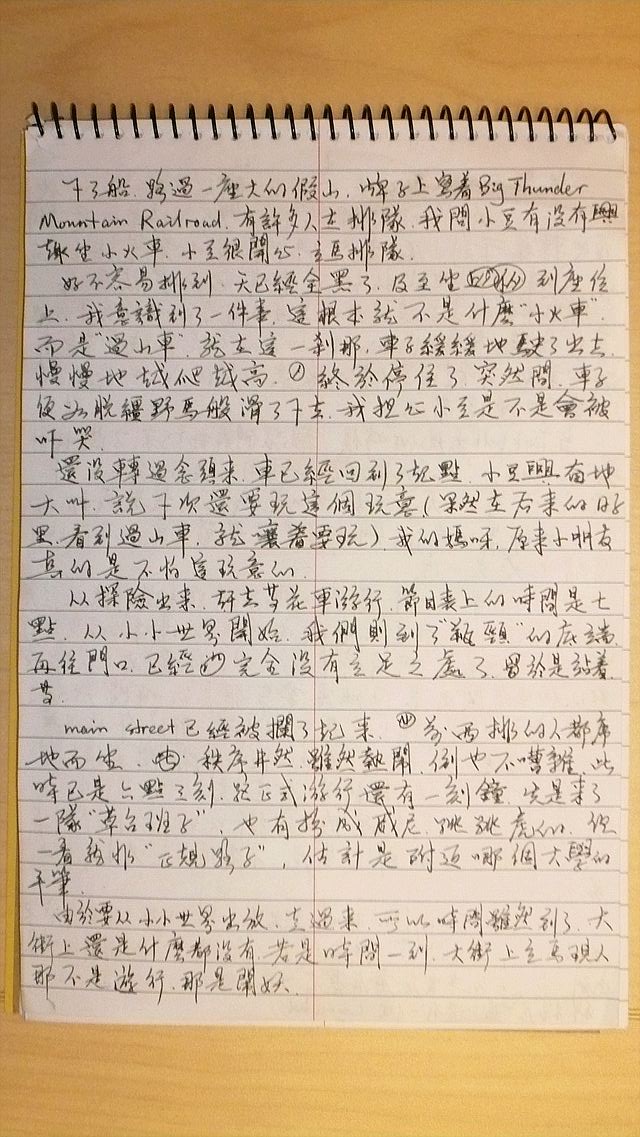 下了船，路過一座大的假山，牌子上寫着Big Thunder
Mountain Railroad，有許多人去排隊，我問小豆有沒有興
趣坐小火車，小豆很開心，立馬排隊。
好不容易排到，天已經全黑了，及至坐到座位
上，我意識到了一件事，這根本就不是什麼“小火車”，
而是“過山車”，就在這一刹那，車子緩緩地駛了出去，
慢慢地越爬越高，終於停住了，突然間，車子
便如脫繮野馬般滑了下去，我担心小豆是不是會被
吓哭。
還沒轉過念頭來，車已經回到了起點，小豆興奮地
大叫，說下次還要玩這個玩意（果然在后来的日子
里，看到過山車，就嚷着要玩）我的媽呀，原來小朋友
真的是不怕這玩意的。
从探險出來，趕去等花車游行，節目表上的時間是七
點，从小小世界開始，我們則到了“瓶頸”的底端
再往門口，已經完全沒有立足之處了，於是站着
等。
main street已經被攔了起來，前兩排的人都席
地而坐，秩序井然，雖然熱鬧，倒也不嘈雜，此
時已是六點三刻，距正式游行還有一刻鐘，先是來了
一隊“草台班子”，也有扮成威尼、跳跳虎的，但
一看就非“正規路子”，估計是附近哪個大學的
手筆。
由於要从小小世界出放，走過來，所以時間雖然到了，大
街上還是什麼都沒有，若是時間一到，大街上立馬現人
那不是遊行，那是鬧妖。